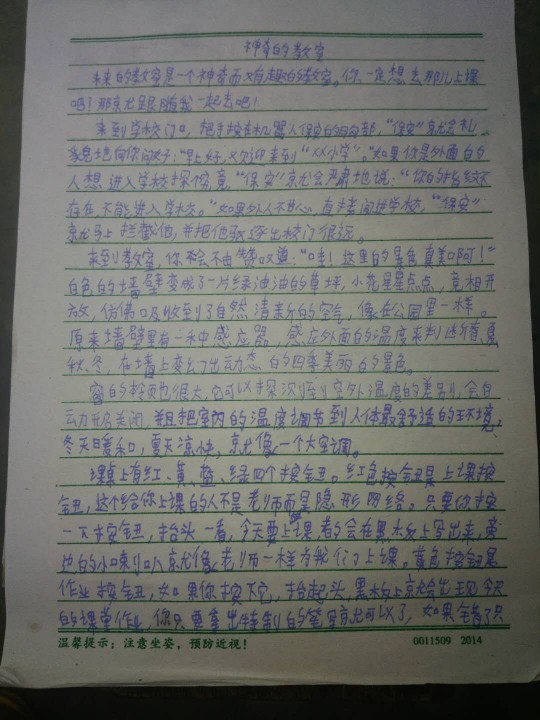 神奇的教室
未来的教室是一个神奇而又有趣的教室。你一定想去那儿上课
吧！那就跟随我一起去吧！
来到学校门口，把手按在机器人保安的胸部，“保安”就会礼
貌地向你问好：“早上好，欢迎来到“XX小学”。”如果你是外面的
人想进入学校探究竟，“保安”就会严肃地说：“你的指纹不
存在，不能进入学校。”如果外人不甘心，直接闯进学校，“保安”
就马上拦截他，并把他驱逐出校门很远。
来到教室，你会不由赞叹道：“哇！这里的景色真美啊！”
白色的墙壁变成了一片绿油油的草坪，小花星星点点，竞相开
放，仿佛吸收到了自然清新的空气，像在公园里一样。
原来墙壁里有一种感应器，感应外面的温度来判断春、夏、
秋、冬，在墙上变幻出动态的四季美丽的景色。
窗的本领也很大，它可以探测到室外温度的差别，会自
动开启关闭，并且把室内的温度调节到人体最舒适的环境，
冬天暖和，夏天凉快，就像一个大空调。
课桌上有红、黄、蓝、绿四个按钮。红色按钮是上课按
钮，这个给你上课的人不是老师而是隐形网络。只要你按
一下按钮，抬头一看，今天要上课的会在黑板上写出来，旁
边的小喇叭就像老师一样为我们上课。黄色按钮是
作业按钮，如果你按下它，抬起头，黑板上就会出现今天
的课堂作业，你只要拿出特制的笔写就可以了，如果错了只
温馨提示：注意坐姿，预防近视！ 0011509 2014